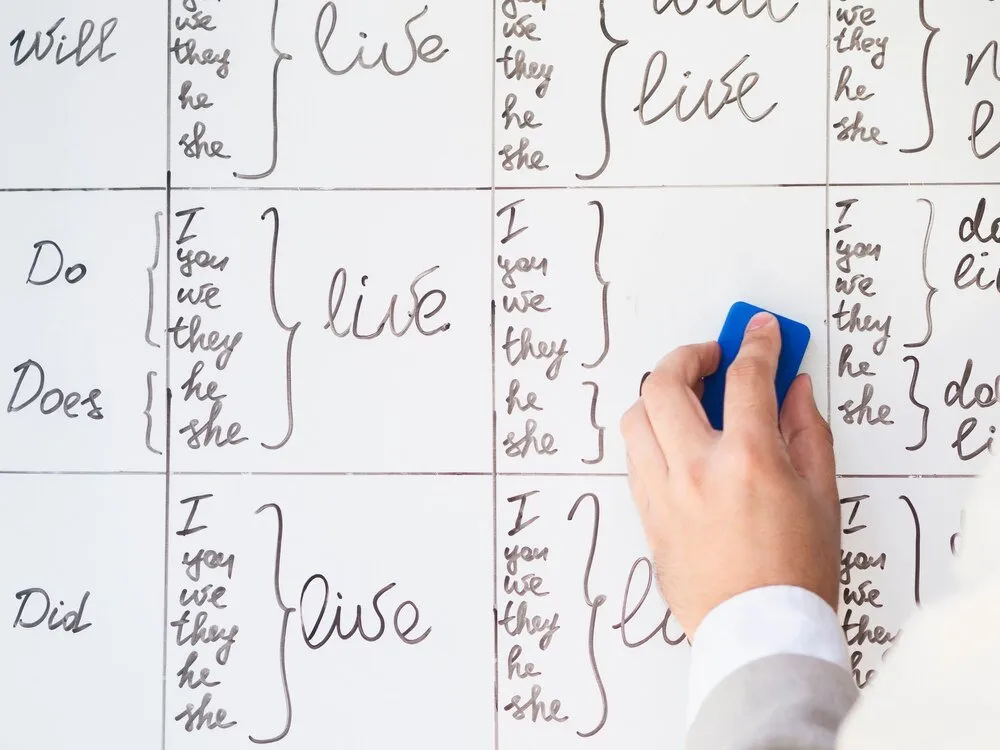 Will
you
we
they
he
she
live
you
we
they
he
she
will
live
we
they
he
she
Do
Does
I
you
we
they
he
she
live
I
you
we
they
he
she
I
you
we
they
he
she
do
li
do
li
Did
I
you
we
they
he
she
live
I
you
we
they
he
she
li
I
you
we
they
he